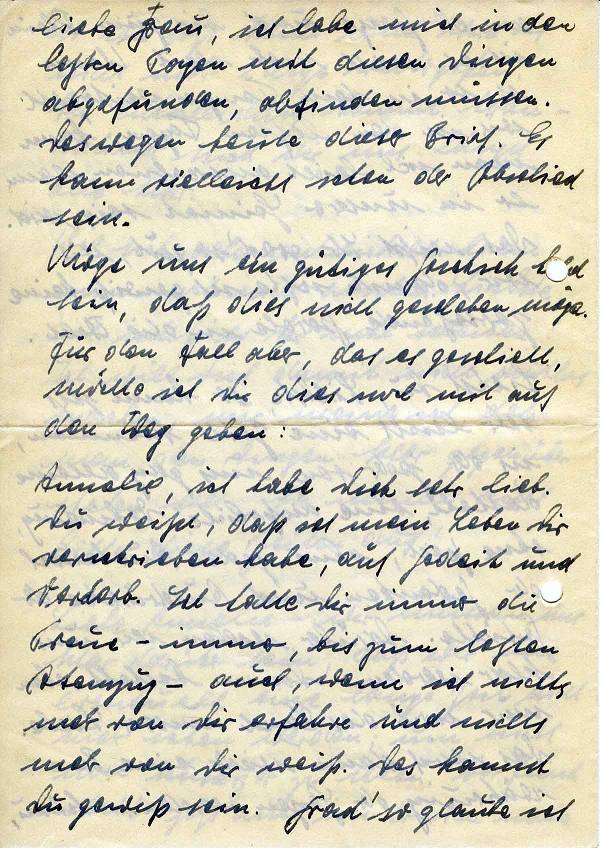 liebe Frau, ich habe mich in den
letzten Tagen mit diesen Dingen
abgefunden, abfinden müssen.
Deswegen heute dieser Brief. Es
kann vielleicht schon der Abschied
sein.
Möge uns ein gütiges Geschick
sein, daß dies nicht geschehen möge.
Für den Fall aber, das es geschieht,
möchte ich Dir dies noch mit auf
den Weg geben:
Annelie, ich habe Dich sehr lieb.
Du weißt, daß ich mein Leben Dir
verschrieben habe, auf Gedeih und
Verderb. Ich halte Dir immer die
Treue – immer, bis zum letzten
Atemzug – auch, wenn ich nichts
mehr von Dir erfahre und nichts
mehr von Dir weiß. Das kannst
Du gewiß sein. Grad' so glaube ich